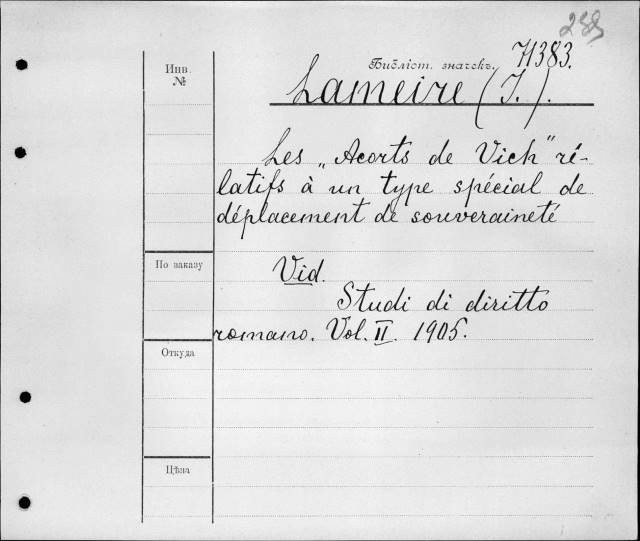 288
Инв. №
Библіот. значекъ. 71383.
Lameire (I.).
Les „Acorts de Vich" ré-
latifs à un type spécial de
déplacement de souveraineté
По заказу
Vid.
Studi di diritto
romano. Vol. II. 1905.
Откуда
Цѣна